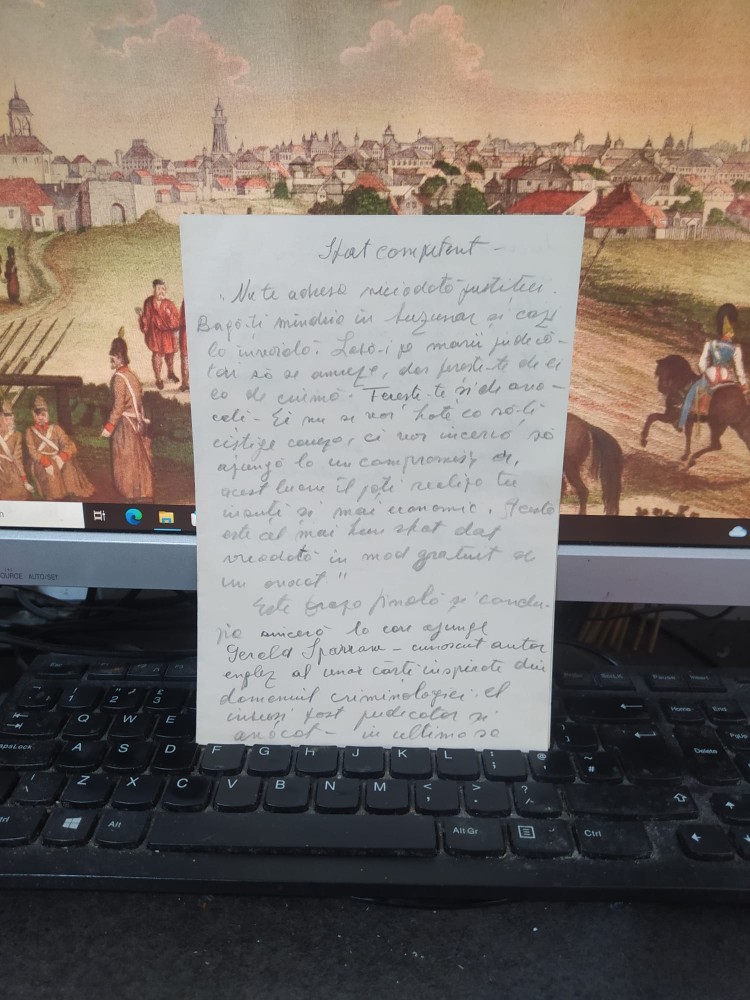 Sfat competent -
"Nu te adresa niciodată justiției.
Bagă-ți mîndria în buzunar și cazi
la învoială. Lasă-i pe marii judecă-
tori să se amuze, dar ferește-te de ei
ca de ciumă. Ferește-te și de avo-
cați - Ei nu se vor bate ca să-ți
cîștige cauza, ci vor încerca să
ajungă la un compromis și,
acest lucru îl poți realiza tu
însuți și mai economic. Acesta
este cel mai bun sfat dat
vreodată în mod gratuit de
un avocat"
Este fraza finală și conclu-
zia sinceră la care ajunge
Gerald Sparrow - cunoscut autor
englez al unor cărți inspirate din
domeniul criminologiei. El
însuși fost judecător și
avocat - în ultima sa
SOURCE AUTO/SET
Q W E
CapsLock A S D F G H J K L
Z X C V B N M
Alt Alt Gr Ctrl
Home End
Delete